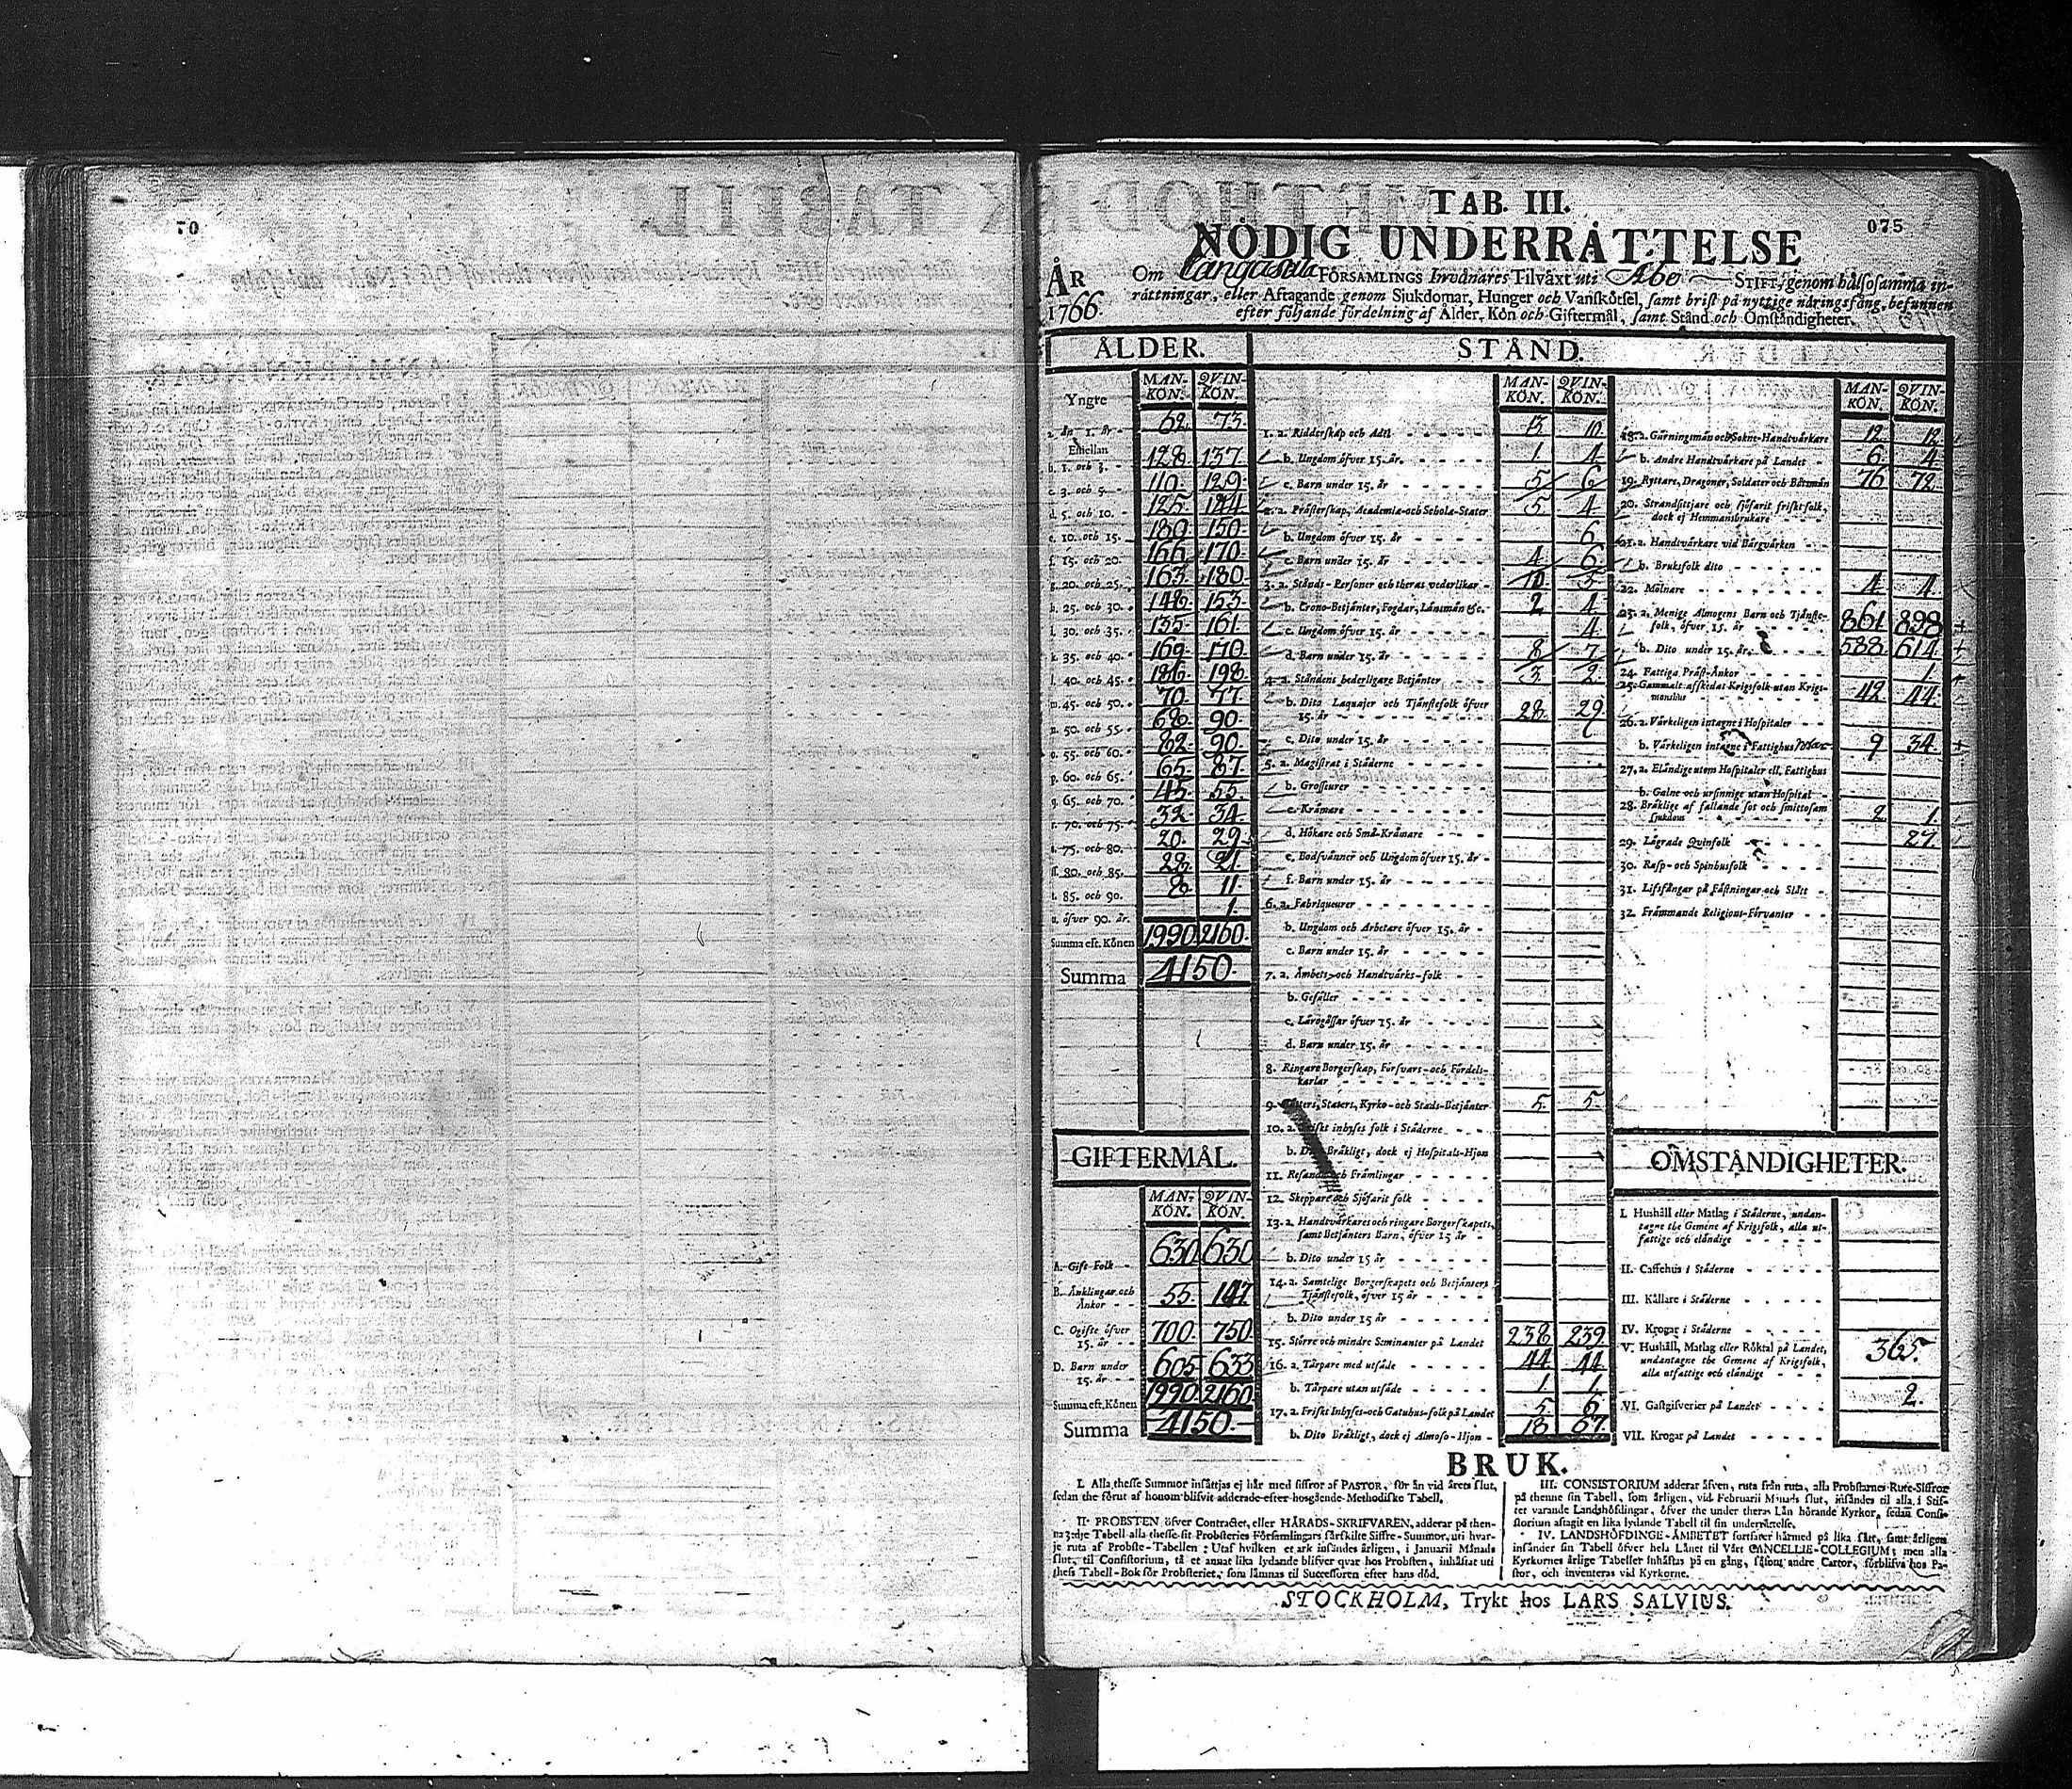 70
075
TAB. III.
NÖDIG UNDERRÄTTELSE
ÅR 1766.
Om Långasala FÖRSAMLINGS Invånares Tilväxt uti Åbo STIFT, genom hälsosamma in-
rättningar, eller Aftagande genom Sjukdomar, Hunger och Vanskötsel, samt brist på nyttige näringsfång, befunnen
efter följande fördelning af Ålder, Kön och Giftermål, samt Stånd och Omständigheter.
ÅLDER.
MAN-KÖN. QVIN-KÖN.
Yngre
a. än 1. år 62. 73.
Emellan
b. 1. och 3. 128. 137.
c. 3 och 5. 110. 129.
d. 5. och 10. 125. 144
e. 10. och 15. 180. 150.
f. 15. och 20. 166. 170.
g. 20. och 25. 163. 180.
h. 25. och 30. 148. 153.
i. 30. och 35. 155. 161.
k. 35. och 40. 169. 170.
l. 40. och 45. 186. 198.
m. 45. och 50. 70. 77.
n. 50. och 55. 68. 90.
o. 55. och 60. 82. 90.
p. 60. och 65. 65. 87.
q. 65. och 70. 45. 55.
r. 70. och 75. 32. 34.
s. 75. och 80. 20. 29.
ſſ. 80. och 85. 28. 21.
t. 85. och 90. 8. 11.
u. öfver 90. år. 1.
Summa eft. Könen 1990 2160.
Summa 4150.
GIFTERMÅL.
MAN-KÖN. QVIN-KÖN.
A. Gift Folk 630 630
B. Änklingar och Änkor 55. 147
C. Ogifte öfver 15. år 700. 750.
D. Barn under 15. år 605 633
Summa eft. Könen 1990 2160
Summa 4150.
STÅND.
MAN-KÖN. QVIN-KÖN.
1. a. Ridderskap och Adel 13 10
b. Ungdom öfver 15. år. 1. 4
c. Barn under 15. år 5 6
2. a. Prästerskap, Academiæ-och Scholæ-Stater 5 4
b. Ungdom öfver 15. år 6
c. Barn under 15. år 4 6
3. a. Stånds-Personer och theras vederlikar 10 5
b. Crono-Betjänter, Fogdar, Länsmän &c. 2 4
c. Ungdom öfver 15. år 4.
d. Barn under 15. år 8 7
4. a. Ståndens hederligare Betjänter 3 2
b. Dito Laquajer och Tjänstefolk öfver
15. år 28. 29
c. Dito under 15. år
5. a. Magistrat i Städerne
b. Grosseurer
c. Krämare
d. Hökare och Små-Krämare
e. Bodsvänner och Ungdom öfver 15. år
f. Barn under 15. år
6. a. Fabriqueurer
b. Ungdom och Arbetare öfver 15. år
c. Barn under 15. år
7. a. Ämbets-och Handtvärks-folk
b. Gesäller
c. Lärogåssar öfver 15. år
d. Barn under 15. år
8. Ringare Borgerskap, Försvars-och Fördels-
karlar
9. Rätters, Staters, Kyrko-och Stads-Betjänter 5. 5.
10. a. Friskt inhyses folk i Städerne
b. Dito Bräkligt, dock ej Hospitals-Hjon
11. Resande och Främlingar
12. Skeppare och Sjöfarit folk
13. a. Handtvärkares och ringare Borgerskapets,
samt Betjänters Barn, öfver 15 år
b. Dito under 15 år
14. a. Samtelige Borgerskapets och Betjänters
Tjänstefolk, öfver 15 år
b. Dito under 15 år
15. Större och mindre Seminanter på Landet 238 239
16. a. Tårpare med utsäde 44 44
b. Tårpare utan utsäde 1. 1.
17. a. Friskt Inhyses-och Gatuhus-folk på Landet 5. 6
b. Dito Bräkligt, dock ej Almoso-Hjon 18 67.
MAN-KÖN. QVIN-KÖN.
18. a. Gärningsmän och Sokne-Handtvärkare 12. 12
b. Andre Handtvärkare på Landet 6 4
19. Ryttare, Dragoner, Soldater och Båtsmän 76 72.
20. Strandsittjare och sjöfarit friskt folk,
dock ej Hemmansbrukare
21. a. Handtvärkare vid Bärgvärken
b. Bruksfolk dito
22. Mölnare 4 4.
23. a. Menige Almogens Barn och Tjänste-
folk, öfver 15. år 861 898
b. Dito under 15. år. 588 614
24. Fattiga Präst-Änkor 1.
25. Gammalt afskedat Krigsfolk utan Krigs-
mansbus 42 44.
26. a. Värkeligen intagne i Hospitaler
b. Värkeligen intagne i Fattighus 9 34.
27. a. Eländige utom Hospitaler ell. Fattighus
b. Galne och ursinnige utan Hospital
28. Bräklige af fallande sot och smittosam
sjukdom 2 1.
29. Lägrade Qvinfolk 27.
30. Rasp-och Spinhusfolk
31. Lifsfångar på Fästningar och Slått
32. Främmande Religions-Förvanter
OMSTÄNDIGHETER.
I. Hushåll eller Matlag i Städerne, undan-
tagne the Gemene af Krigsfolk, alla ut-
fattige och eländige
II. Caffehus i Städerne
III. Källare i Städerne
IV. Krogar i Städerne
V. Hushåll, Matlag eller Röktal på Landet,
undantagne the Gemene af Krigsfolk,
alla utfattige och eländige 365.
VI. Gästgifverier på Landet 2.
VII. Krogar på Landet
BRUK.
I. Alla thesse Summor insättjas ej här med siffror af PASTOR, för än vid årets slut,
sedan the förut af honom blifvit adderade efter hosgående Methodiske Tabell.
II. PROBSTEN öfver Contractet, eller HÄRADS-SKRIFVAREN, adderar på then-
na 3:dje Tabell alla thesse sit Probsteries Församlingars särskilte Siffre-Summor, uti hvar-
je ruta af Probste-Tabellen: Utaf hvilken et ark insändes årligen, i Januarii Månads
slut, til Consistorium, tå et annat lika lydande blifver qvar hos Probsten, inhäftat uti
thess Tabell-Bok för Probsteriet, som lämnas til Successoren efter hans död.
III. CONSISTORIUM adderar äfven, ruta från ruta, alla Probstarnes Rute-Siffror
på thenne sin Tabell, som årligen, vid Februarii Månads slut, insändes til alla i Stif-
tet varande Landshöfdingar, öfver the under theras Län hörande Kyrkor, sedan Consi-
storium aftagit en lika lydande Tabell til sin underrättelse.
IV. LANDSHÖFDINGE-ÄMBETET fortfarer härmed på lika sätt, samt årligen
insänder sin Tabell öfver hela Länet til Vårt CANCELLIE-COLLEGIUM; men alla
Kyrkornes årlige Tabeller inhäftas på en gång, såsom andre Cartor, förblifva hos Pa-
stor, och inventeras vid Kyrkorne.
STOCKHOLM, Trykt hos LARS SALVIUS.